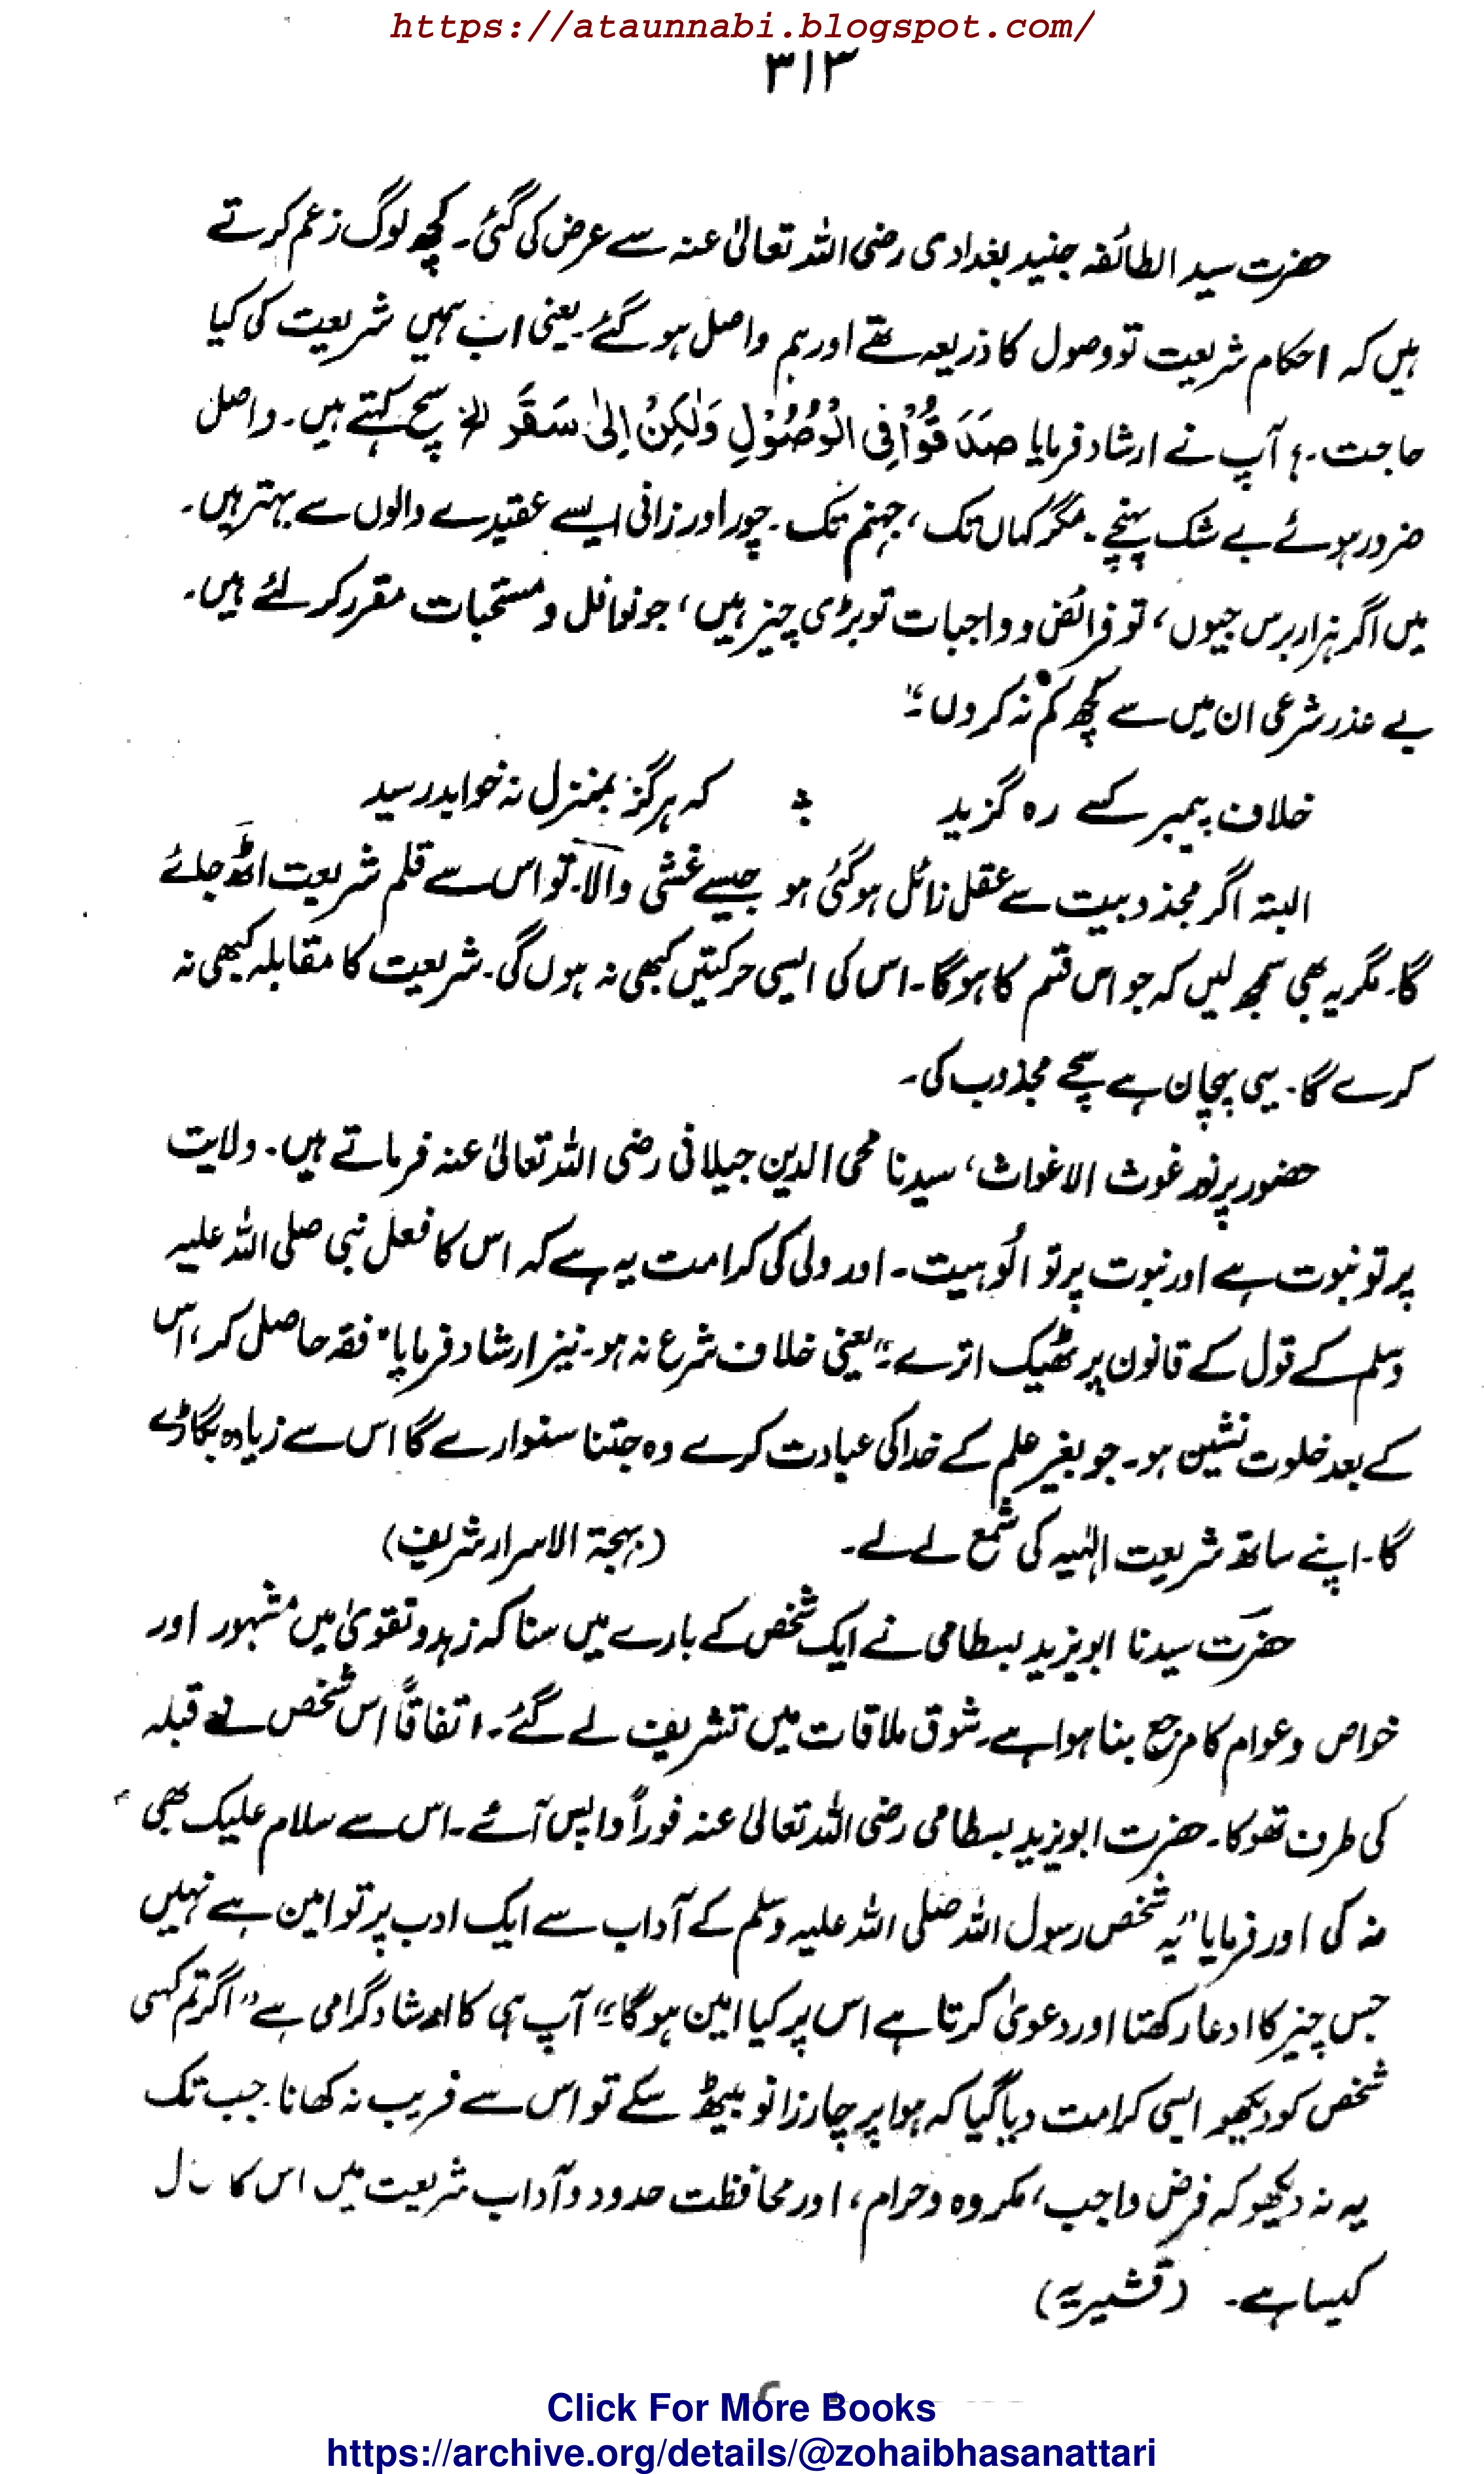 https://ataunnabi.blogspot.com/
۳۱۳
حضرت سید الطائفہ جنید بغدادی رضی اللہ تعالیٰ عنہ سے عرض کی گئی۔ کچھ لوگ زعم کرتے
ہیں کہ احکام شریعت تو وصول کا ذریعہ تھے اور ہم واصل ہو گئے۔ یعنی اب ہمیں شریعت کی کیا
حاجت۔؟ آپ نے ارشاد فرمایا صَدَقُوْا فِی الْوُصُوْلِ وَلٰکِنْ اِلیٰ سَقَر الخ سچ کہتے ہیں۔ واصل
ضرور ہوئے بے شک پہنچے۔ مگر کہاں تک، جہنم تک۔ چور اور زانی ایسے عقیدے والوں سے بہتر ہیں۔
میں اگر ہزار برس جیوں، تو فرائض و واجبات تو بڑی چیز ہیں، جو نوافل و مستحبات مقرر کر لئے ہیں۔
بے عذر شرعی ان میں سے کچھ کم نہ کروں۔"
خلاف پیمبر کسے رہ گزید ؛ کہ ہرگز بمنزل نہ خواہد رسید
البتہ اگر مجذوبیت سے عقل زائل ہو گئی ہو جیسے غشی والا۔ تو اس سے قلم شریعت اٹھ جائے
گا۔ مگر یہ بھی سمجھ لیں کہ جو اس قسم کا ہوگا۔ اس کی ایسی حرکتیں کبھی نہ ہوں گی۔ شریعت کا مقابلہ کبھی نہ
کرے گا۔ یہی پہچان ہے سچے مجذوب کی۔
حضور پرنور غوث الاغواث، سیدنا محی الدین جیلانی رضی اللہ تعالیٰ عنہ فرماتے ہیں۔ ولایت
پرتو نبوت ہے اور نبوت پرتو الُوہیت۔ اور ولی کی کرامت یہ ہے کہ اس کا فعل نبی صلی اللہ علیہ
وسلم کے قول کے قانون پر ٹھیک اترے۔" یعنی خلاف شرع نہ ہو۔ نیز ارشاد فرمایا" فقہ حاصل کر، اس
کے بعد خلوت نشین ہو۔ جو بغیر علم کے خدا کی عبادت کرے وہ جتنا سنوارے گا اس سے زیادہ بگاڑے
گا۔ اپنے ساتھ شریعت الٰہیہ کی شمع لے لے۔ (بہجۃ الاسرار شریف)
حضرت سیدنا ابویزید بسطامی نے ایک شخص کے بارے میں سنا کہ زہد و تقویٰ میں مشہور اور
خواص و عوام کا مرجع بنا ہوا ہے۔ شوق ملاقات میں تشریف لے گئے۔ اتفاقاً اس شخص نے قبلہ
کی طرف تھوکا۔ حضرت ابویزید بسطامی رضی اللہ تعالیٰ عنہ فوراً واپس آئے۔ اس سے سلام علیک بھی
نہ کی اور فرمایا" یہ شخص رسول اللہ صلی اللہ علیہ وسلم کے آداب سے ایک ادب پر تو امین ہے نہیں
جس چیز کا ادعا رکھتا اور دعویٰ کرتا ہے اس پر کیا امین ہوگا۔" آپ ہی کا ارشاد گرامی ہے" اگر تم کسی
شخص کو دیکھو ایسی کرامت دیا گیا کہ ہوا پر چار زانو بیٹھ سکے تو اس سے فریب نہ کھانا۔ جب تک
یہ نہ دیکھو کہ فرض واجب، مکروہ وحرام، اور محافظت حدود و آداب شریعت میں اس کا
کیسا ہے۔ (قشیریہ)
Click For More Books
https://archive.org/details/@zohaibhasanattari